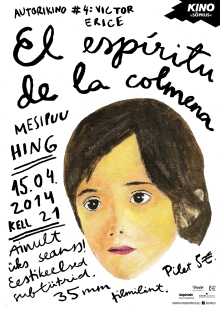 AUTORIKINO #4: VICTOR
ERICE
KINO
SÕPRUS
El espíritu
de la colmena
MESIPUU
HING
15.04.
2014
KELL 21
Ainult
üks seanss!
Eestikeelsed
subtiitrid.
35mm filmilint.
Pilet 5€.